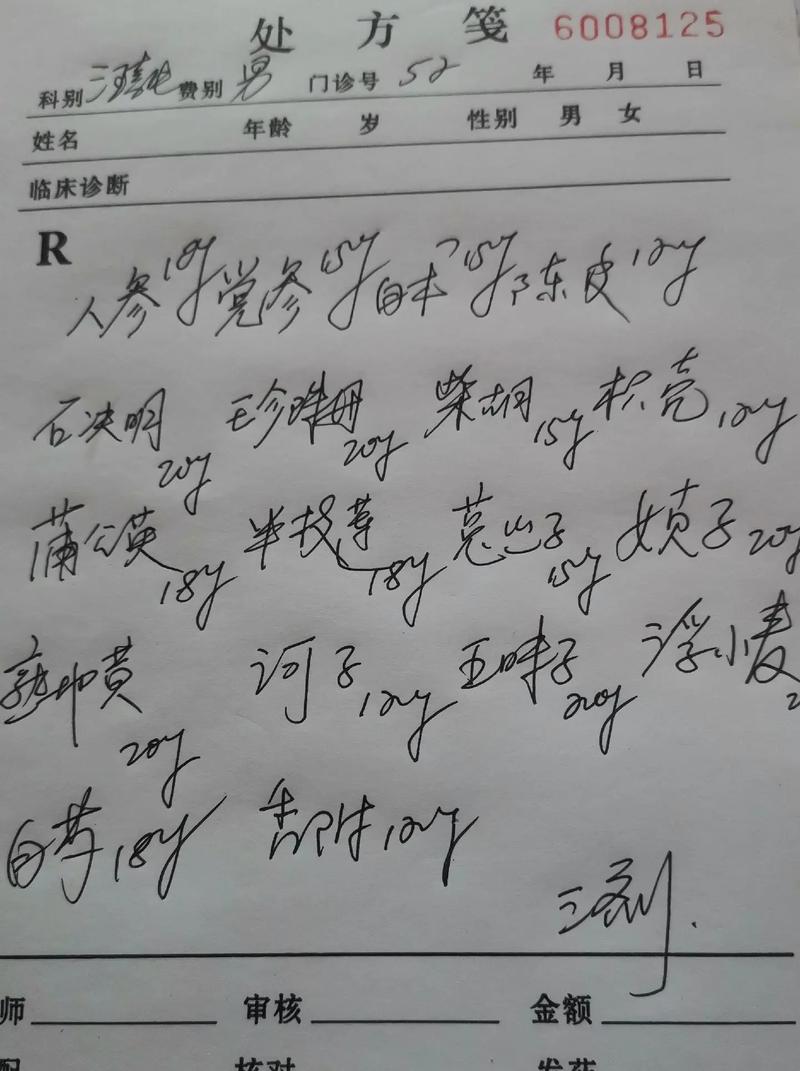 处方笺 6008125
科别 汪 费别 男 门诊号 52 年 月 日
姓名 年龄 岁 性别 男 女
临床诊断
R
人参18g 党参15g 白术15g 陈皮12g
石决明20g 珍珠母20g 柴胡15g 枳壳12g
蒲公英18g 半枝莲18g 子15g 女贞子20g
熟地黄20g 诃子12g 五味子20g 浮小麦2
白芍18g 香附12g
三剂
师 审核 金额
配 核对 发药